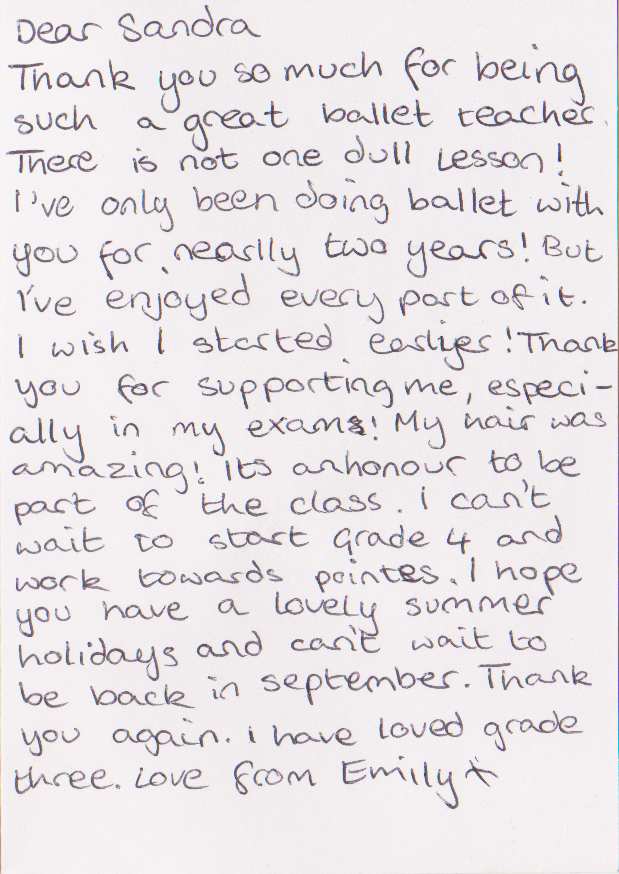 Dear Sandra
Thank you so much for being
such a great ballet teacher.
There is not one dull Lesson!
I've only been doing ballet with
you for nearlly two years! But
I've enjoyed every part of it.
I wish I started earlyer! Thank
you for supporting me, especi-
ally in my exams! My hair was
amazing! Its anhonour to be
part of the class. i can't
wait to start grade 4 and
work towards pointes. I hope
you have a lovely summer
holidays and can't wait to
be back in september. Thank
you again. i have loved grade
three. Love from Emily x